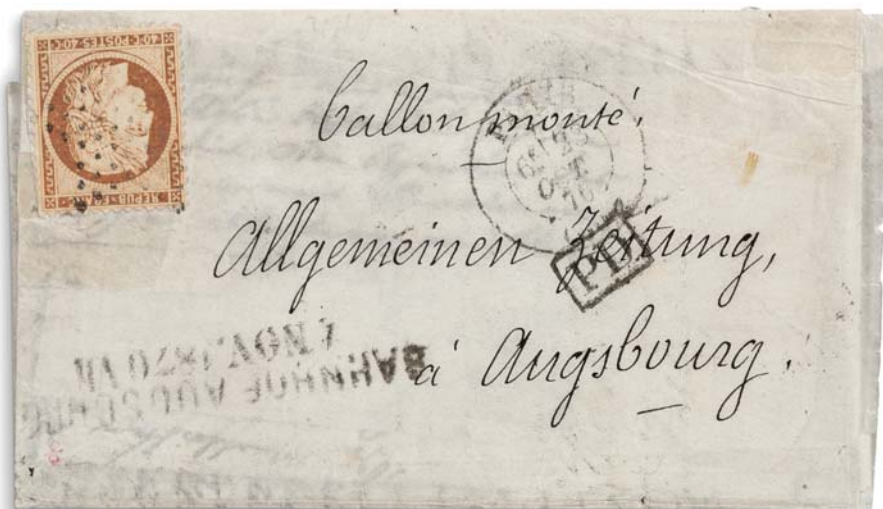 40·C·POSTES·40·C
REPUB·FRANC
Ballon monté.
PARIS
OCT.
70
Allgemeinen Zeitung,
à Augsbourg.
BAHNHOF AUGSBURG
7 NOV. 1870 VII